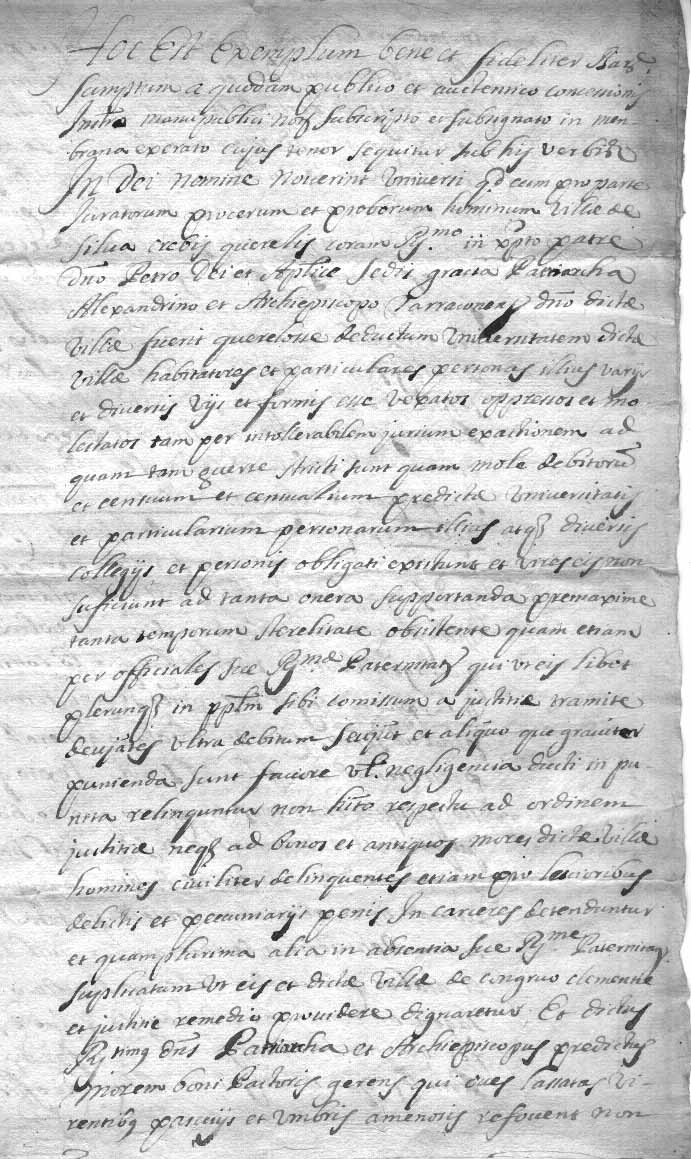 Hoc Est Exemplum bene et fideliter
sumptum a quodam publico et auctentico concessionis
manu publici Not subscripto et subsignato in mem-
brana exerato cujus tenor sequitur sub his verbis
In Dei Nomine Noverint Universi qd cum pro parte
Juratorum procerum et proborum hominum Villæ de
Silua crebis querelis coram Rmo in xpto patre
dno Petro Dei et Aplice Sedis gracia Patriarcha
Alexandrino et Archiepiscopo Tarraconen dno dictæ
Villæ fuerit querelose deductum Universitatem dictæ
Villæ habitatores et particulares personas illius varijs
et diversis vijs et formis esse vexatos oppressos et mo
lestatos tam per intollerabilem jurium exactionem ad
quam tam stricti sunt quam mole debitoru
et censuum et censualium predictæ Universitatis
et particularium personarum illius atq diversis
collegijs et personis obligati existunt et vires eis non
suficiunt ad tanta onera supportanda premaxime
tanta temporum sterelitate obsistente quam etiam
per officiales suæ Rmæ Paternitat qui vt eis libet
plerunq in pplm sibi comissum a justitiæ tramite
devijātes vltra debitum et aliquo que graviter
punienda sunt favore vl negligencia ducti in pu-
nita relinquntur non hito respectu ad ordinem
justitiæ neq ad bonos et antiquos mores dictæ Villæ
homines civiliter delinquentes etiam pro levioribus
delictis et pecuniarijs penis In carceres detenduntur
et quamplurima alia in absentia suæ Rme Paternitatis
suplicatum vt eis et dictæ Villæ de congruo clementiæ
et justitie remedio providere dignaretur Et dictus
dns Patriarcha et Archiepiscopus predictus
morem boni Pastoris gerens qui oves lassatas vi-
rentibq pascuijs et vmbris amenosis refovent non